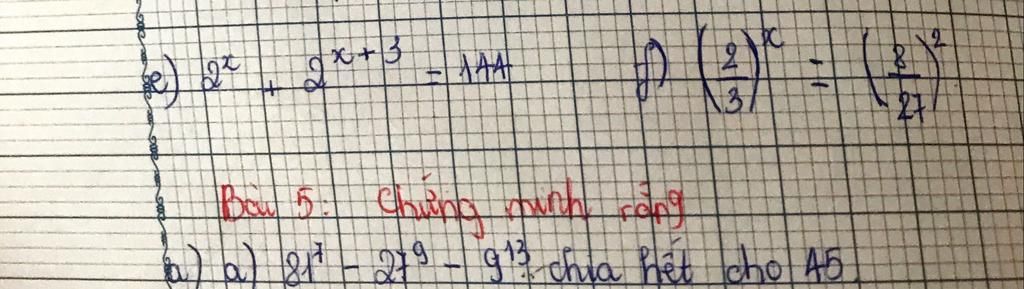 e) 2ˣ + 2ˣ⁺³ = 144 f) (2/3)ˣ = (8/27)²
Bài 5: Chứng minh rằng
a) a) 81⁷ - 27⁹ - 9¹³ chia hết cho 45